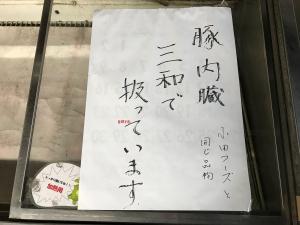 豚内臓
三和で
扱っています
小田フーズと
同じ品物
加熱用